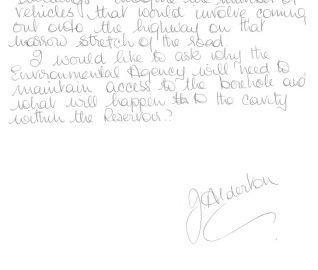 vehicles that would involve coming
out onto the highway on that
narrow stretch of the road.
I would like to ask why the
Environmental Agency will need to
maintain access to the borehole and
what will happen to the cavity
within the Reservoir?
J Alderton